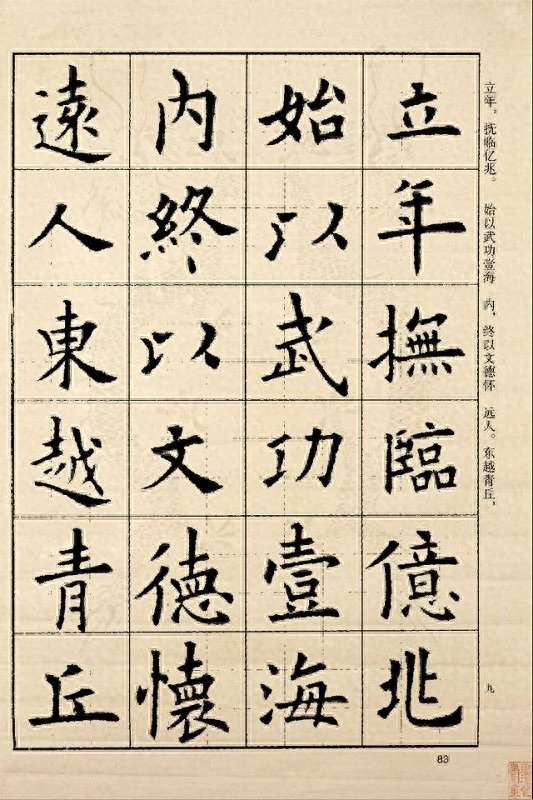 立年撫臨億兆
始以武功壹海
内終以文德懷
遠人東越青丘
立年。抚临亿兆。 始以武功壹海 内，终以文德怀 远人。东越青丘，
九
83